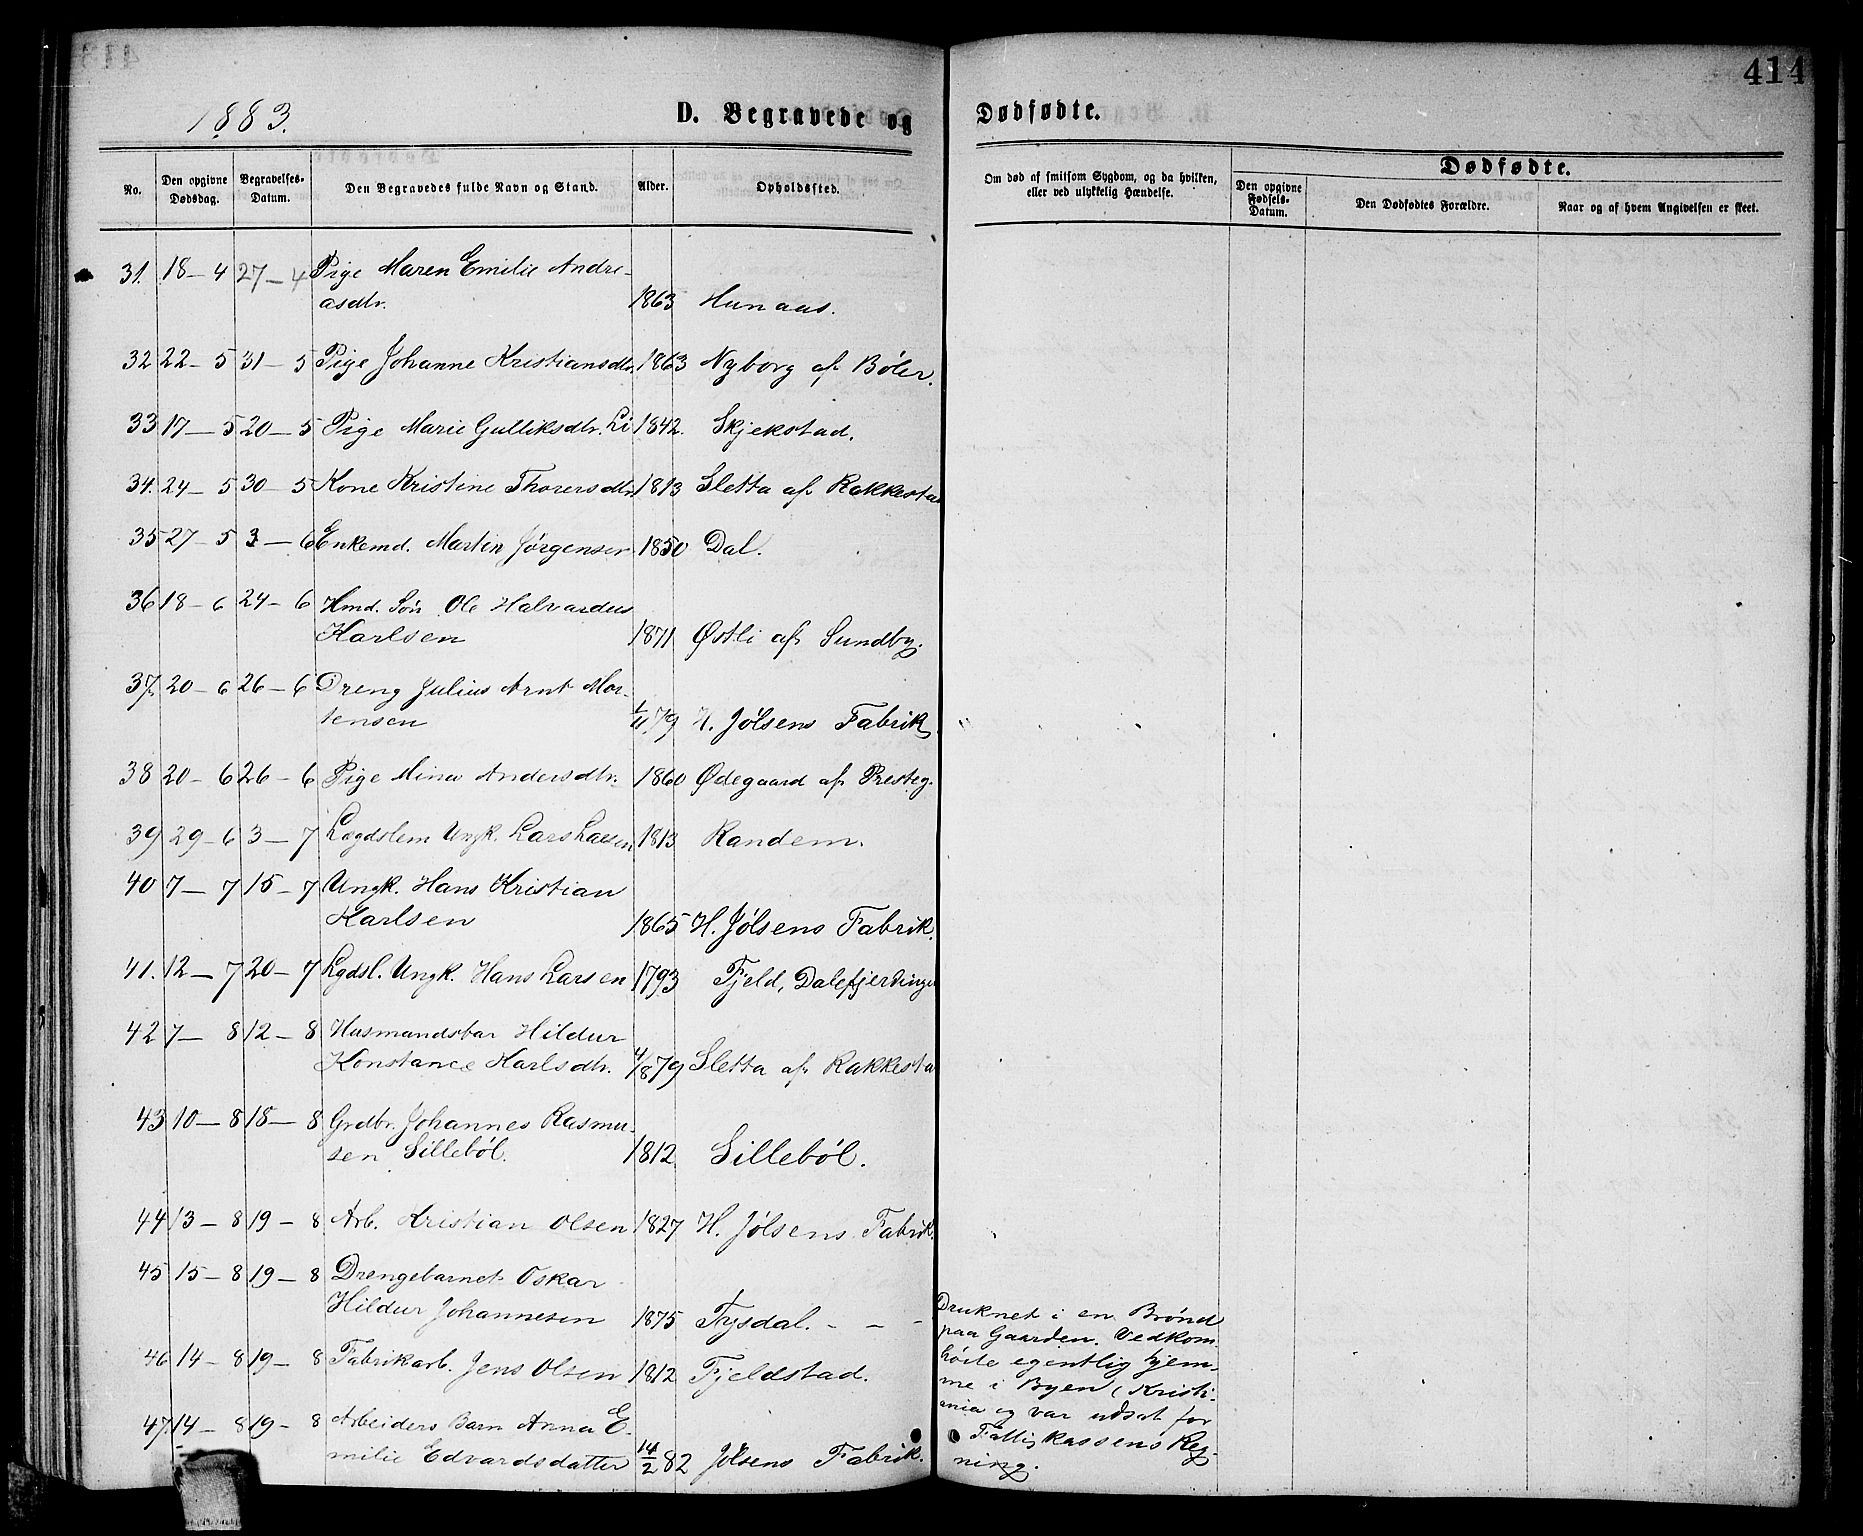 414
1883.
D. Begravede og
Dødfødte.
No.
Den opgivne Dødsdag.
Begravelses-Datum.
Den Begravedes fulde Navn og Stand.
Alder.
Opholdssted.
Om død af smitsom Sygdom, og da hvilken, eller ved ulykkelig Hændelse.
Dødfødte.
Den opgivne Fødsels-Datum.
Den Dødfødtes Forældre.
Naar og af hvem Angivelsen er skeet.
31. 18-4 27-4 Pige Maren Emilie Andre-
asdtr. 1863 Hunaas.
32 22-5 31-5 Pige Johanne Kristiansdtr. 1863 Nyborg af Bøler.
33 17-5 20-5 Pige Marie Gulliksdtr. Li 1842. Skjekstad.
34. 24-5 30-5 Kone Kristine Thorersdtr. 1813 Sletta af Rakkesta
35 27-5 3-6 Enkemd. Martin Jørgensen 1850 Dal.
36 18-6 24-6 Hmd. Søn Ole Halvardus
Karlsen 1871 Østli af Sundby.
37. 20-6 26-6 Dreng Julius Arnt Mor-
tensen 1/11 79 H. Jølsens Fabrik
38 20-6 26-6 Pige Mina Andersdtr. 1860 Ødegaard af Presteg.
39 29-6 3-7 Lægdslem Ungk. Lars Larsen 1813 Randem.
40 7-7 15-7 Ungk. Hans Kristian
Karlsen 1865 H. Jølsens Fabrik.
41. 12-7 20-7 Lgdsl. Ungk. Hans Larsen 1793 Fjeld, Dalefjerdinge
42 7-8 12-8 Husmandsbar Hildur
Konstance Karlsdtr. 4/8 79 Sletta af Rakkesta
43 10-8 18-8 Grdbr. Johannes Rasmu-
sen Sillebøl. 1812. Sillebøl.
44 13-8 19-8 Arb. Kristian Olsen 1827 H. Jølsens Fabrik.
45 15-8 19-8 Drengebarnet Oskar
Hildur Johannesen 1875 Tysdal. - - -
Druknet i en Brønd
paa Gaarden. Vedkom-
46 14-8 19-8 Fabrikarb. Jens Olsen 1812 Fjeldstad.
hørte egentlig hjem-
me i Byen, Kristi-
ania og var udsat for
47. 14-8 19-8 Arbeiders Barn Anna E-
milie Edvardsdatter 14/2 82 Jølsens Fabrik.
Fattigkassens Reg-
ning.